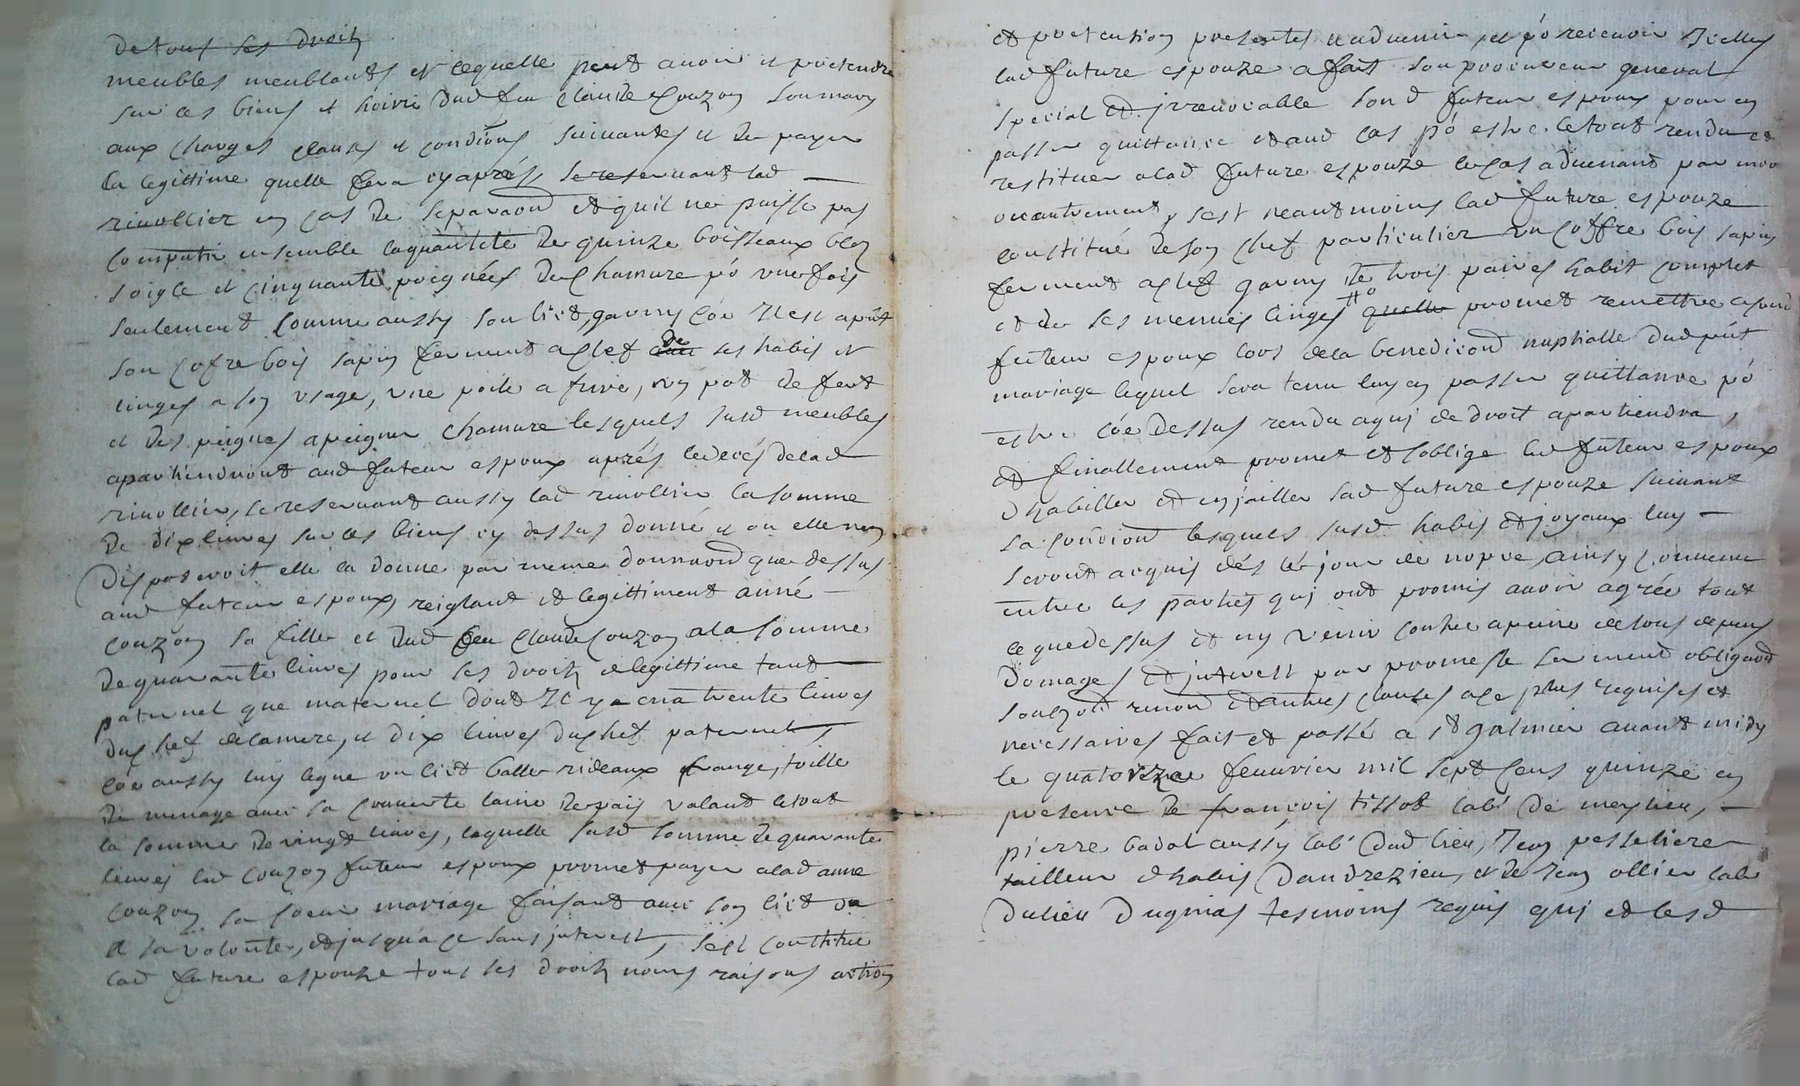 de tous ses droits
meubles meublants et cequelle peut avoir et pretendre
sur les biens et hoirie dud feu claude Couzon son mary
aux charges clauses et condions suivantes et de payer
la legittime quelle fera cyaprés se reservant lad
rivollier en cas de separaon et quil ne puisse pas
compatir ensemble la quantite de quinze boisseaux bled
soigle et cinquante poignées de Chamure po' une fois
seulement comme aussy son lict, garny coe Il est apñt
son cofre bois sapin fermant a clef de ses habis et
linges a son usage, une poile a frire, un pot de fert
et des peignes a peigner chamure lesquels susd meubles
apartiendront aud futeur espoux aprés le decés de lad
rivollier, se reservant aussy lad rivollier la somme
de dix livres sur les biens cy dessus donné et ou elle nen
disposeroit elle la donne par meme donnaond que dessus
aud futeur espoux, reiglant et legittimant anné
couzon sa fille et dud feu claude Couzon a la somme
de quarante livres pour ses droits de legittime tant
paternel que maternel dont Il y a en a trente livres
du chef de la mere, et dix livres du chef paternel,
coe aussy luy legue un lict balle rideaux frange, toille
de menage avec sa couverte laine de pais valant le tout
la somme de vingt livres, laquelle susd somme de quarante
livres led couzon futeur espoux promet payer a lad anne
couzon sa soeur mariage faisant avec son lict ou
a sa volonte, et jusqua ce sans jnterest, sest constitue
lad future espouze tous ses droits noms raisons action
et pretention presentes et advenir, et po' recevoir Icelles
lad future espouze a fait son procureur general
special et jrrevocable sond futeur espoux pour en
passer quittance et aud cas po' estre le tout rendu et
restituer a lad future espouze le cas advenant par mort
ou autrement, sest neantmoins lad future espouze
constitué de son chef particulier un coffre bois sapin
fermant a clef garny de trois paires habit complet
et de ses menues linges quelle promet remettre a sond
futeur espoux lors de la benediciond nuptialle dud pñt
mariage lequel sera tenu luy en passer quittance po'
estre coe dessus rendu a qui de droit apartiendra,
et finallement promet et soblige led futeur espoux
dhabiller et enjailler sad future espouze suivant
sa condiond lesquels susd habis et joyaux luy
seront acquis dés le jour de nopce, ainsy convenu
entre les parties qui ont promis avoir agrée tout
ce que dessus et ny venir contre a peine de tous depens
domages et jnterest par promesse serment obligaond
soubzon renon et autres clauses a ce plus requises et
necessaires fait et passé a st galmier avant midy
le quatorze febvrier mil sept cens quinze en
presence de françois tissot labr de meylieu,
pierre badol aussy labr dud lieu, Jean pesseliere
tailleur dhabis dandrezieu, et de Jean ollier labr
du lieu dugmas tesmoins requis qui et lesd